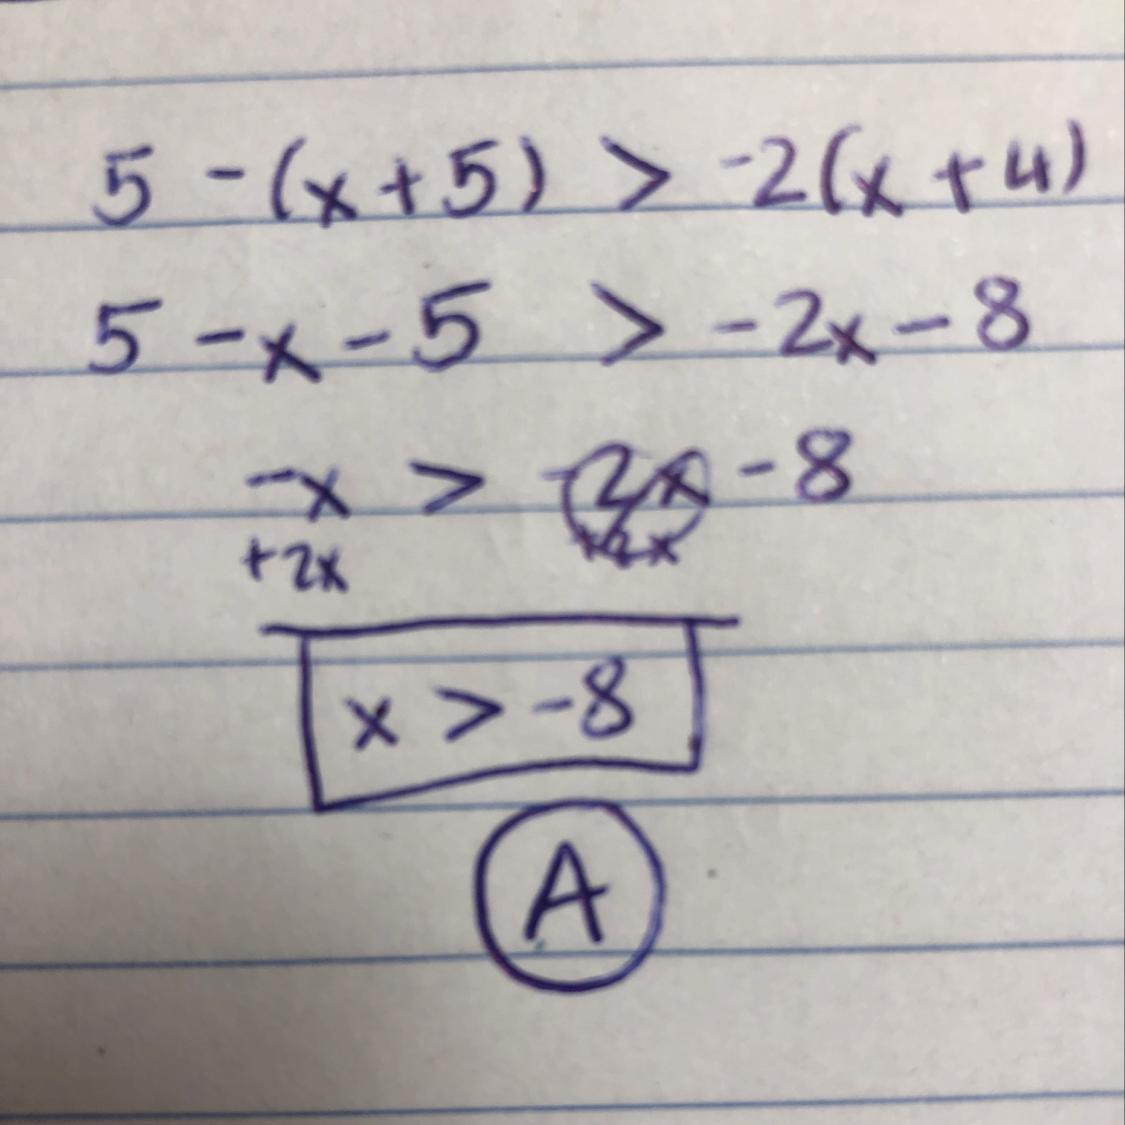 5 - (x + 5) > -2(x + 4)
5 - x - 5 > -2x - 8
-x > -2x - 8
+2x +2x
x > -8
A